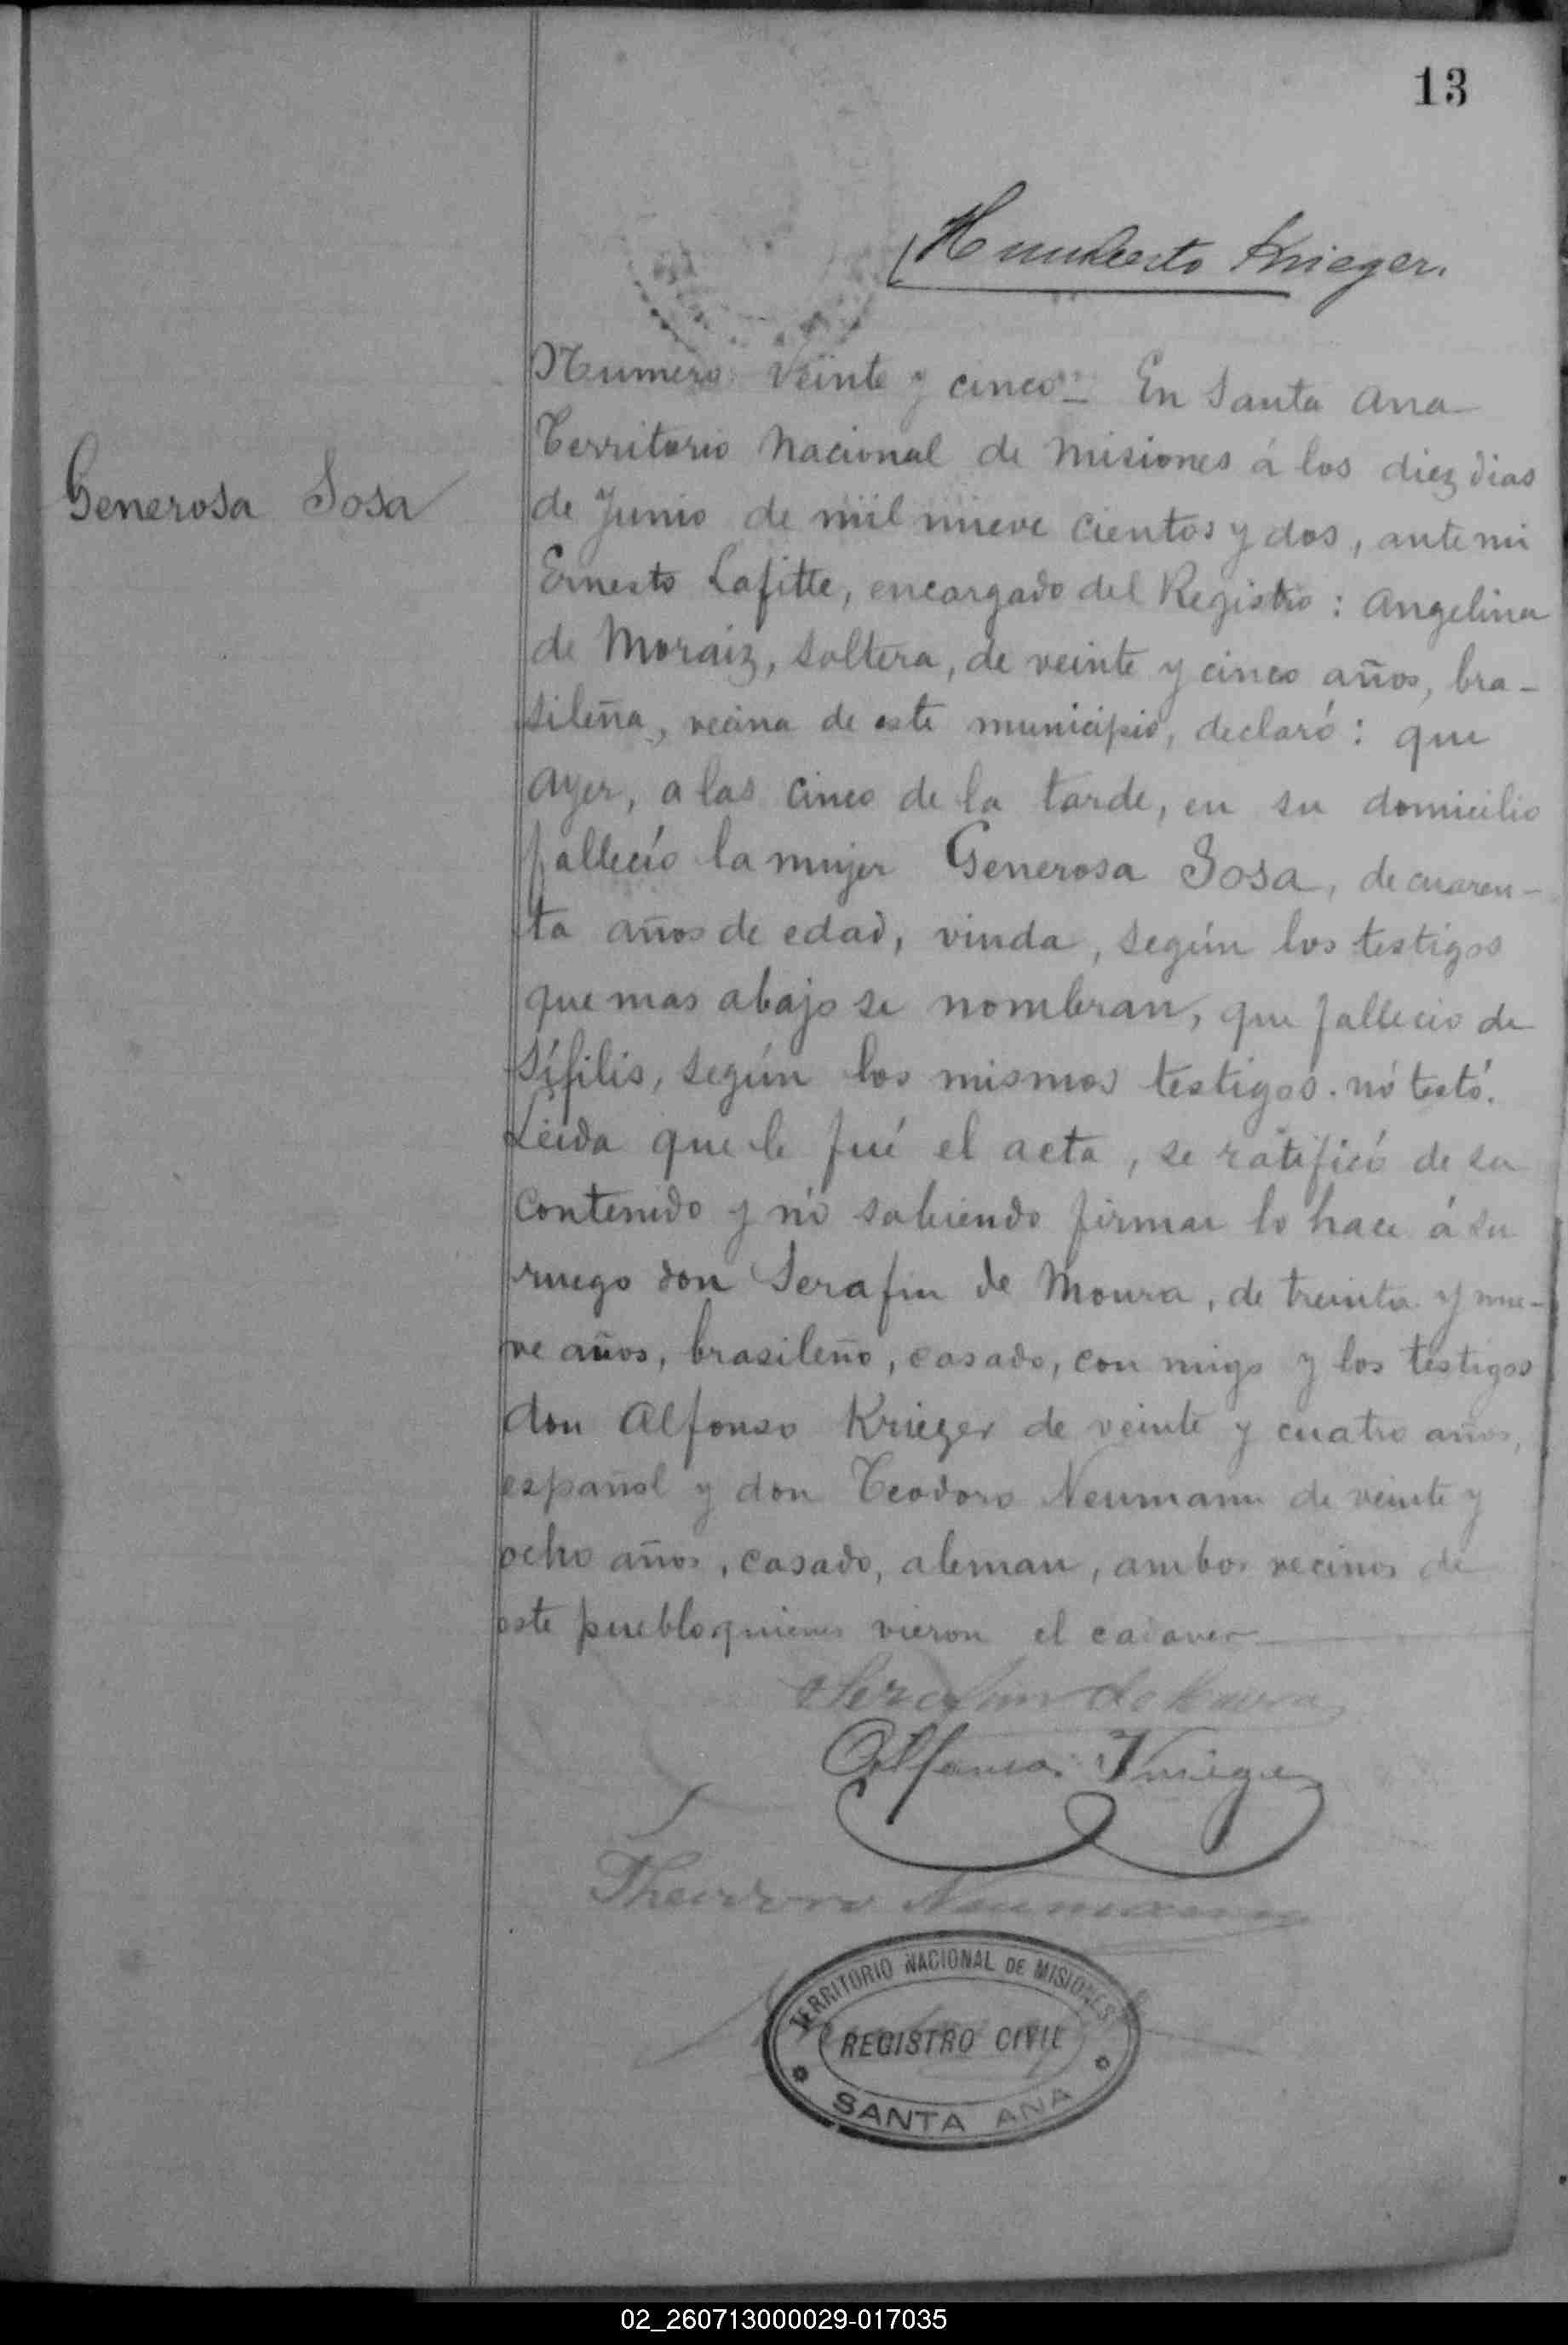 13
Humberto Krieger.
Numero veinte y cinco_ En Santa Ana
Territorio Nacional de Misiones á los diez dias
Generosa Sosa
de Junio de mil nueve cientos y dos, ante mi
Ernesto Lafitte, encargado del Registro: Angelina
de Moraiz, soltera, de veinte y cinco años, bra-
sileña, vecina de este municipio, declaró: que
ayer, a las cinco de la tarde, en su domicilio
falleció la mujer Generosa Sosa, de cuaren-
ta años de edad, viuda, según los testigos
que mas abajo se nombran, que fallecio de
sífilis, según los mismos testigos. nó testó.
Leida que le fué el acta, se ratificó de su
contenido y nó sabiendo firmar lo hace á su
ruego don Serafin de Moura, de treinta y nue-
ve años, brasileño, casado, con migo y los testigos
don Alfonso Krieger de veinte y cuatro años,
español y don Teodoro Neumann de veinte y
ocho años, casado, aleman, ambos vecinos de
este pueblo quienes vieron el cadaver
Serafim de Moura
Alfonso Krieger
Theodoro Neumann
TERRITORIO NACIONAL DE MISIONES
REGISTRO CIVIL
SANTA ANA
02_260713000029-017035